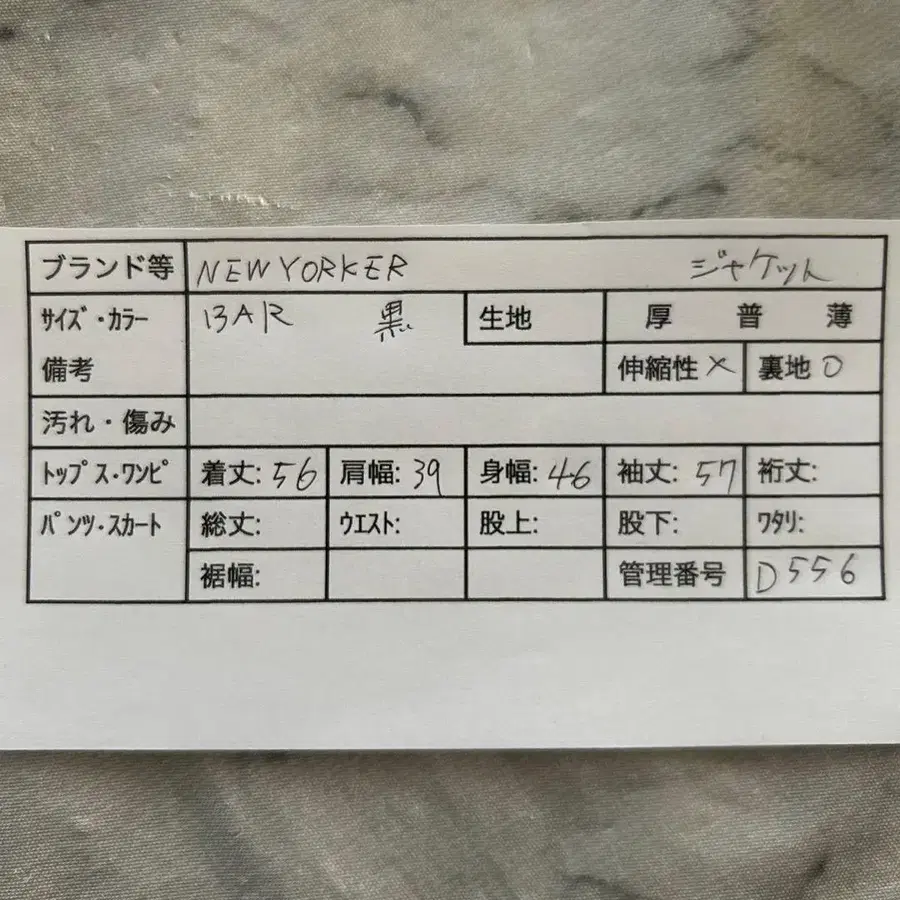 ブランド等 NEWYORKER ジャケット
サイズ・カラー 13AR 黒 生地 厚 普 薄
備考 伸縮性 × 裏地 ○
汚れ・傷み
トップス・ワンピ 着丈: 56 肩幅: 39 身幅: 46 袖丈: 57 裄丈:
パンツ・スカート 総丈: ウエスト: 股上: 股下: ワタリ:
裾幅: 管理番号 D556